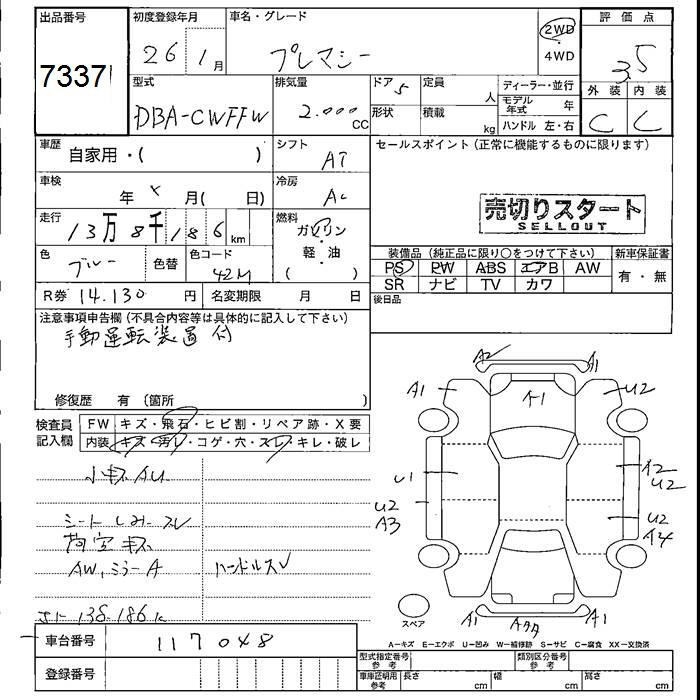 出品番号 初度登録年月 車名・グレード 評価点
7337 26年 1月 プレマシー 2WD ・ 4WD 3.5
型式 排気量 ドア 5 定員 人 ディーラー・並行 外装 内装
DBA-CWFFW 2.000 CC 形状 積載 kg モデル年式 年 ハンドル 左・右 C C
車歴 自家用・( ) シフト AT セールスポイント (正常に機能するものに限ります)
車検 年 × 月( 日) 冷房 AC
売切りスタート
SELLOUT
走行 13万8千186 km 燃料 ガソリン・軽・油 ( )
色 ブルー 色替 色コード 42M
装備品 (純正品に限り○をつけて下さい) 新車保証書
PS PW ABS エアB AW 有・無
SR ナビ TV カワ
R券 14.130 円 名変期限 月 日 後日品
注意事項申告欄 (不具合内容等は具体的に記入して下さい)
手動運転装置付
修復歴 有 (箇所 )
検査員記入欄 FW キズ・飛石・ヒビ割・リペア跡・X要
内装 キズ・汚レ・コゲ・穴・スレ・キレ・破レ
小キズ AU
シートしみースレ
荷室キズ
AW、ミラーA ハンドルスレ
138.186k
A2 A1
A1 A1 U2
U1 A2 U2
U2 A3 U2 A4
A1 A1
スペア
A=キズ E=エクボ U=凹み W=補修跡 S=サビ C=腐食 XX=交換済
車台番号 117048
登録番号
型式指定番号 参考 類別区分番号 参考
車庫証明用 参考 長さ cm 幅 cm 高さ cm